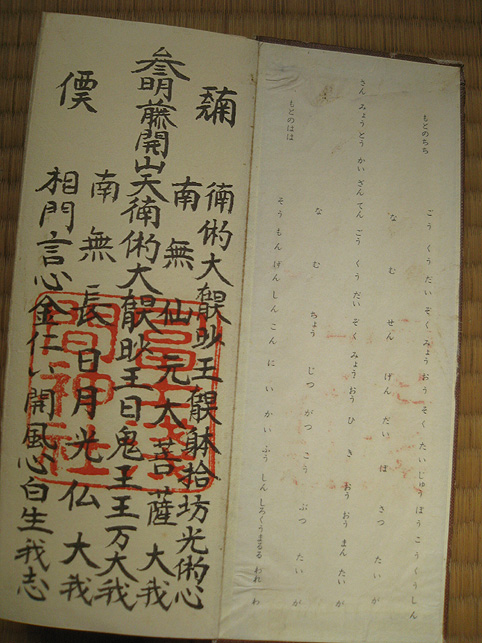 もとのちち
ごう くう だい ぞく みょう おう そく たい じゅう ぼう こう くう しん
な む せん げん だい ぼ さつ たい が
さん みょう とう かい ざん てん ごう くう だい ぞく みょう おう ひ き おう おう まん たい が
な む ちょう じつ がつ こう ぶつ たい が
もとのはは
そう もん げん しん こん に い かい ふう しん しろく うまるる われ わ
大 王 躰拾坊光 心
南無仙元大菩薩 大我
参明藤開山天 大 王日鬼王王万大我
南無長日月光仏 大我
相門言心金仁 開風心白生我志